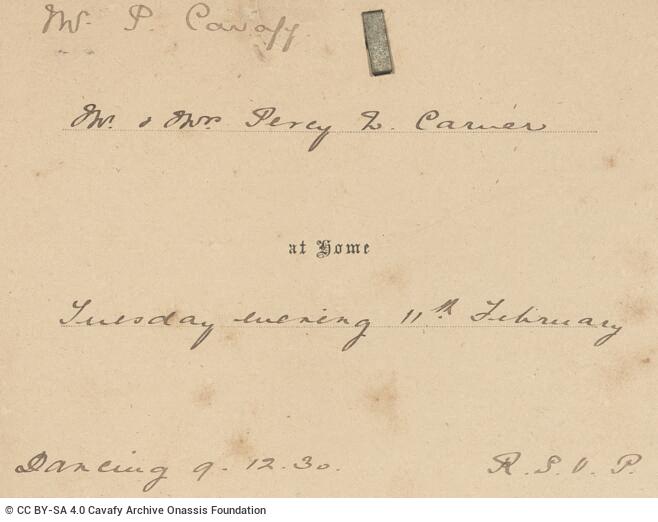 Mr. P. Cavafy
Mr. & Mrs. Percy Z. Carver
at Home
Tuesday evening 11th February
Dancing 9. 12.30.
R. S. V. P.
© CC BY-SA 4.0 Cavafy Archive Onassis Foundation